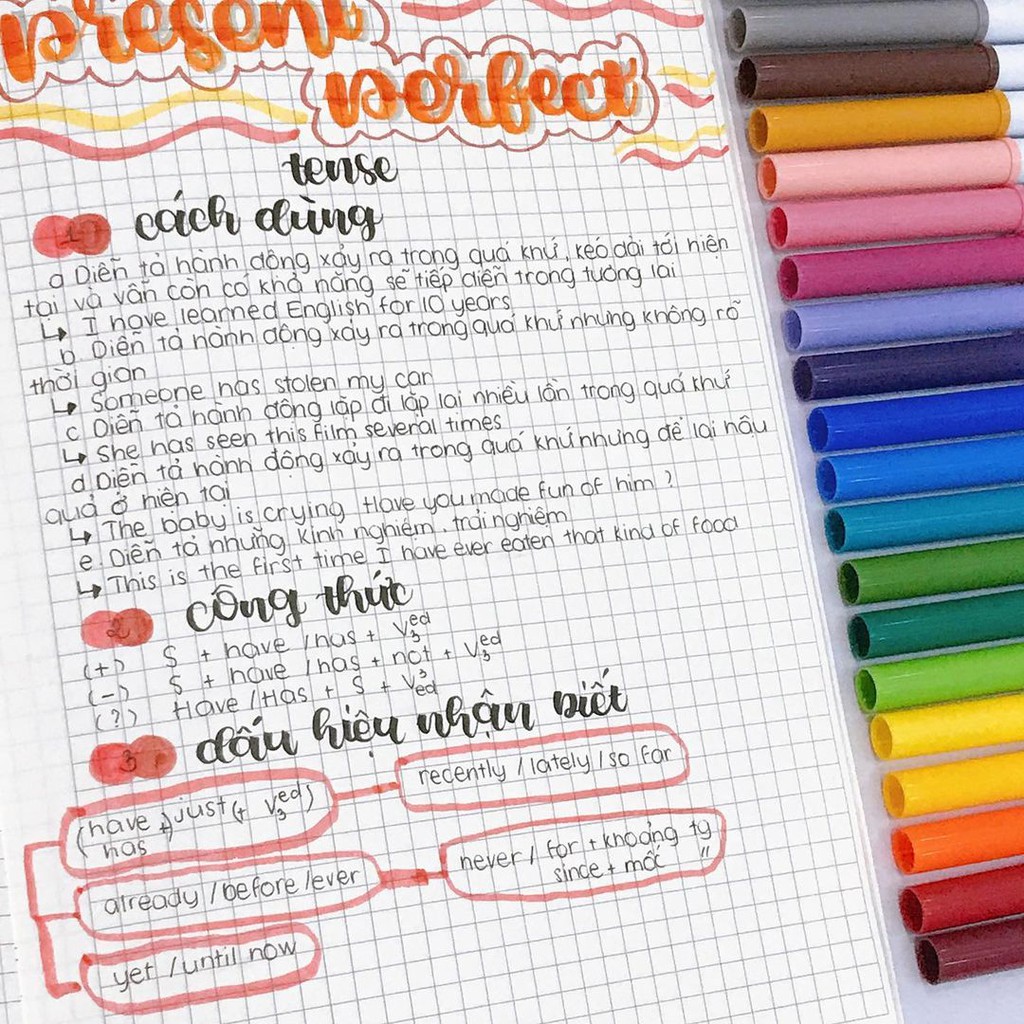 present
perfect
tense
1 cách dùng
a Diễn tả hành động xảy ra trong quá khứ, kéo dài tới hiện
tại và vẫn còn có khả năng sẽ tiếp diễn trong tương lai
↳ I have learned English for 10 years
b. Diễn tả hành động xảy ra trong quá khứ nhưng không rõ
thời gian
↳ Someone has stolen my car
c. Diễn tả hành động lặp đi lặp lại nhiều lần trong quá khứ
↳ She has seen this film several times
d. Diễn tả hành động xảy ra trong quá khứ nhưng để lại hậu
quả ở hiện tại
↳ The baby is crying Have you made fun of him ?
e. Diễn tả những kinh nghiệm, trải nghiệm
↳ This is the first time I have ever eaten that kind of food
2 công thức
(+) S + have /has + V3 ed
(-) S + have /has + not + V3 ed
(?) Have /Has + S + V3 ed
3 dấu hiệu nhận biết
(have /has +) just (+ V3 ed)
recently / lately / so far
already / before / ever
never / for + khoảng tg
since + mốc "
yet / until now